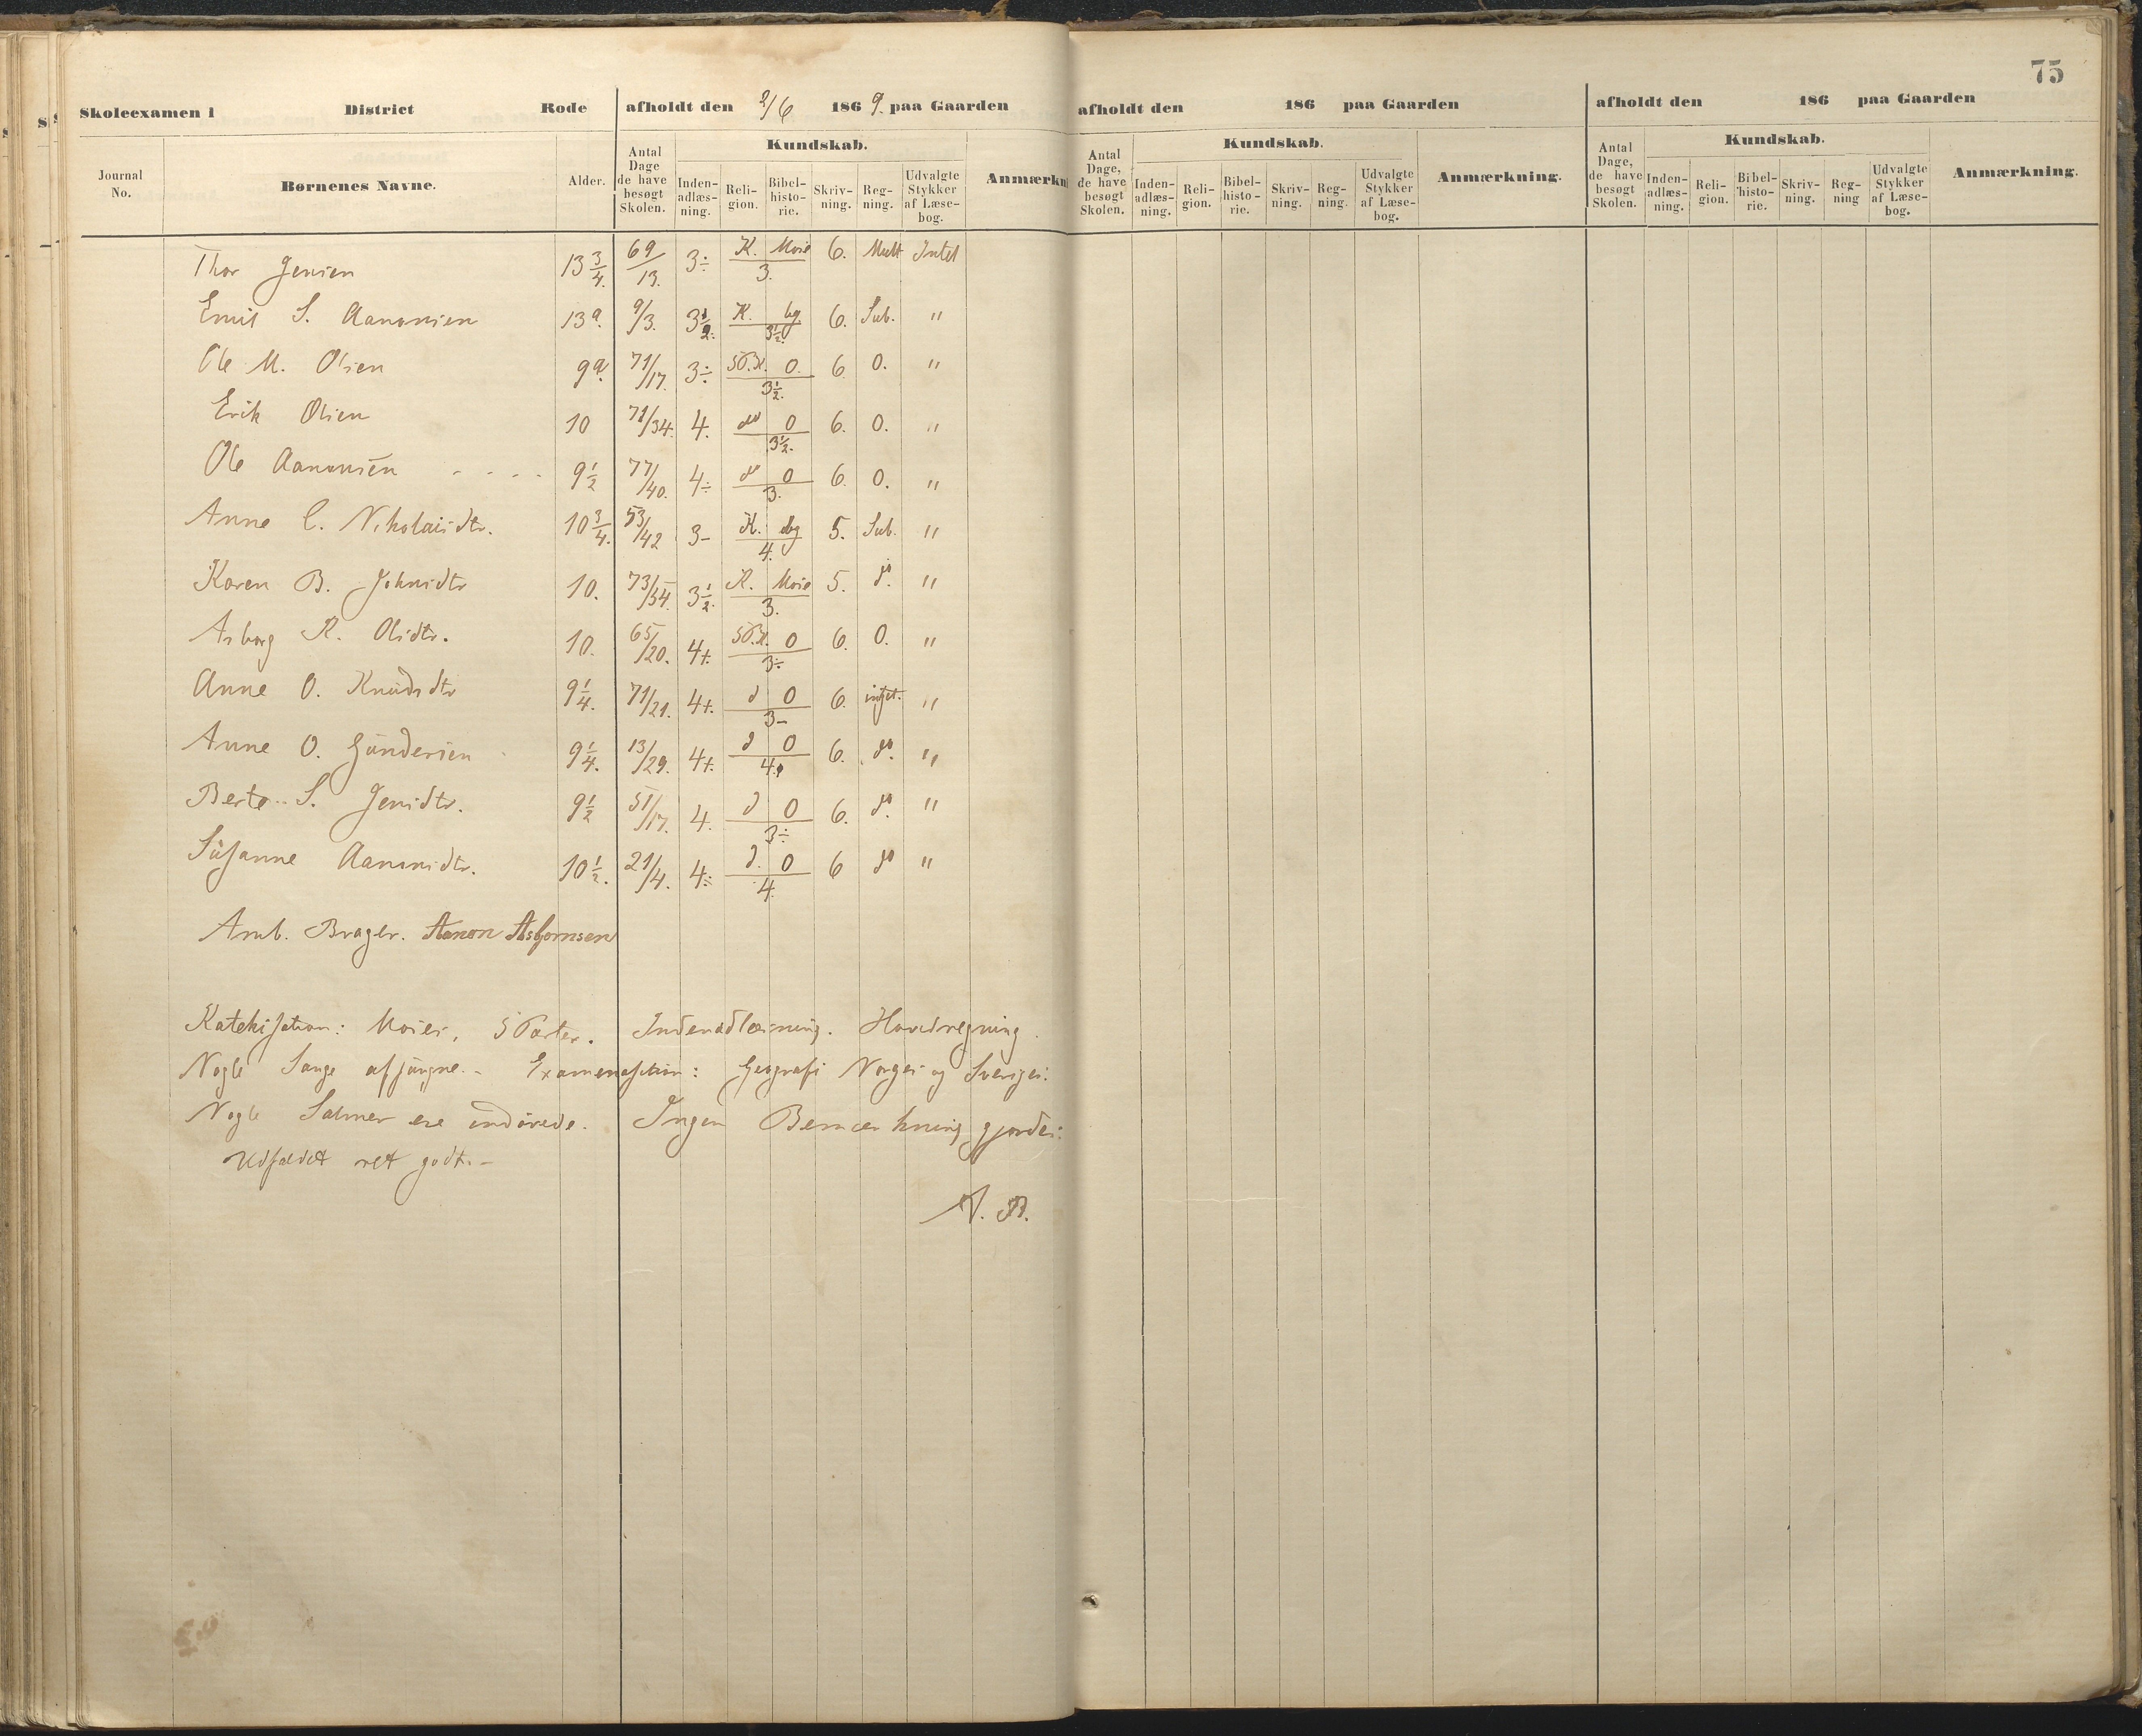 75
Skoleexamen i District Rode afholdt den 2/6 1869. paa Gaarden
afholdt den 186 paa Gaarden
afholdt den 186 paa Gaarden
Journal No. Børnenes Navne. Alder. Antal Dage de have besøgt Skolen. Kundskab. Inden-adlæs-ning. Reli-gion. Bibel-histo-rie. Skriv-ning. Reg-ning. Udvalgte Stykker af Læse-bog. Anmærkn
Antal Dage, de have besøgt Skolen. Kundskab. Inden-adlæs-ning. Reli-gion. Bibel-histo-rie. Skriv-ning. Reg-ning. Udvalgte Stykker af Læse-bog. Anmærkning.
Antal Dage, de have besøgt Skolen. Kundskab. Inden-adlæs-ning. Reli-gion. Bibel-histo-rie. Skriv-ning. Reg-ning Udvalgte Stykker af Læse-bog. Anmærkning.
Thor Jensen 13 3/4. 69/13. 3÷ K. Mose 3. 6. Mult Intet
Emil S. Aanonsen 13 9/3. 3 1/2. K. 3 1/2. 6. Sub. "
Ole M. Olsen 9 71/17. 3÷ 0. 3 1/2. 6 0. "
Erik Olsen 10 71/34. 4. do 0 3 1/2. 6. 0. "
Ole Aanonsen - - - - 9 1/2 77/40. 4÷ do 0 3. 6. 0. "
Anne C. Nikolaisdtr. 10 3/4. 53/42 3- K. 4. 5. Sub. "
Karen B. Johnsdtr 10. 73/54. 3 1/2. K. Mose 3. 5. do. "
Asborg K. Olsdtr. 10. 65/20. 4+. 0 3÷ 6. 0. "
Anne O. Knudsdtr 9 1/4. 71/21. 4+. d 0 3- 6. intet. "
Anne O. Gundersen 9 1/4. 13/29. 4+. d 0 4. 6. do. "
Berte S. Jensdtr. 9 1/2 51/17. 4. d 0 3÷ 6. do. "
Susanne Aanonsdtr. 10 1/2. 21/4. 4÷ d. 0 4. 6 do "
Amb. Brager. Aanon Asbjornsen
Katekisation: Moses, 5 Parter. Indenadlæsning. Hovedregning.
Nogle Sange afsungne. - Examenation: Geografi Norges og Sveriges.
Nogle Salmer ere indövede. Ingen Bemærkning gjordes.
Udfaldet ret godt. -